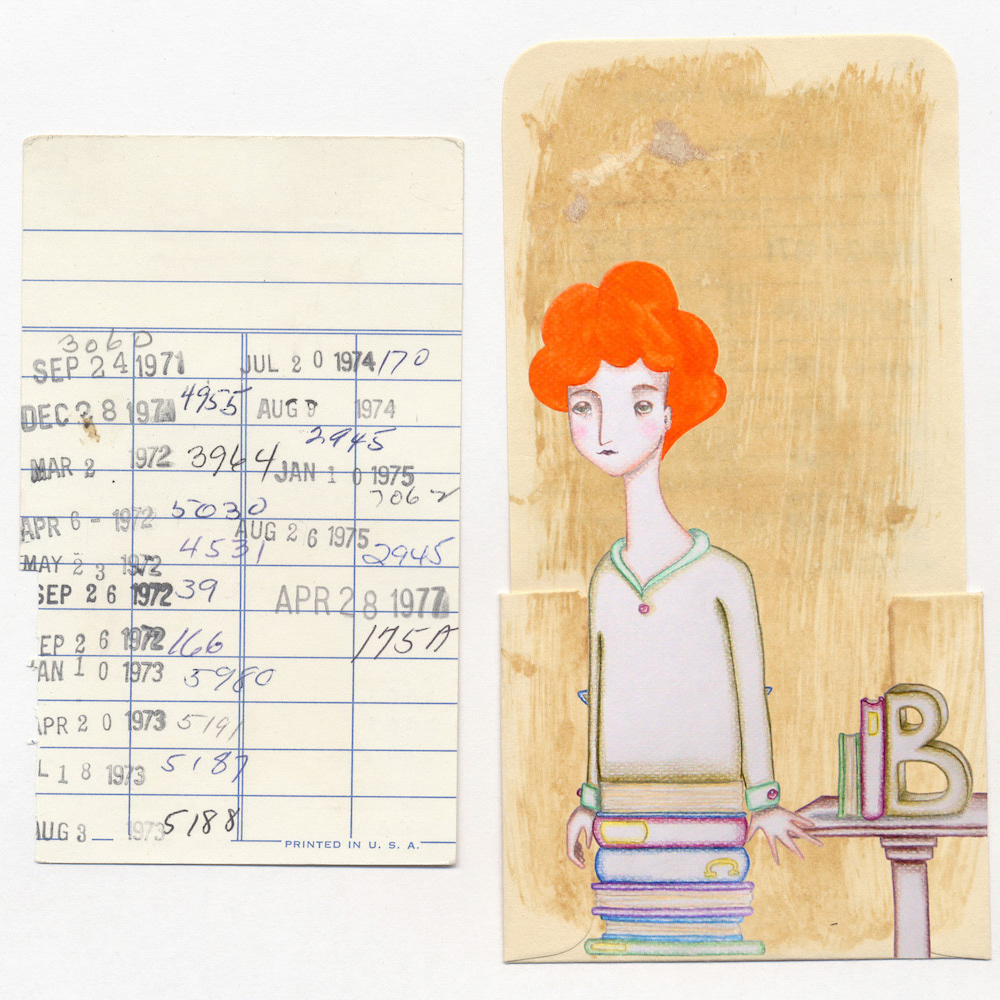 3060
SEP 24 1971
DEC 28 1971 4955
MAR 2 1972 3964
APR 6 - 1972 5030
4531
MAY 23 1972
SEP 26 1972 39
SEP 26 1972 166
JAN 10 1973 5980
APR 20 1973 5191
L 18 1973 5187
AUG 3 - 1973 5188
JUL 20 1974 170
AUG 9 1974
2945
JAN 10 1975
7062
AUG 26 1975
2945
APR 28 1977
175A
PRINTED IN U. S. A.
B
C